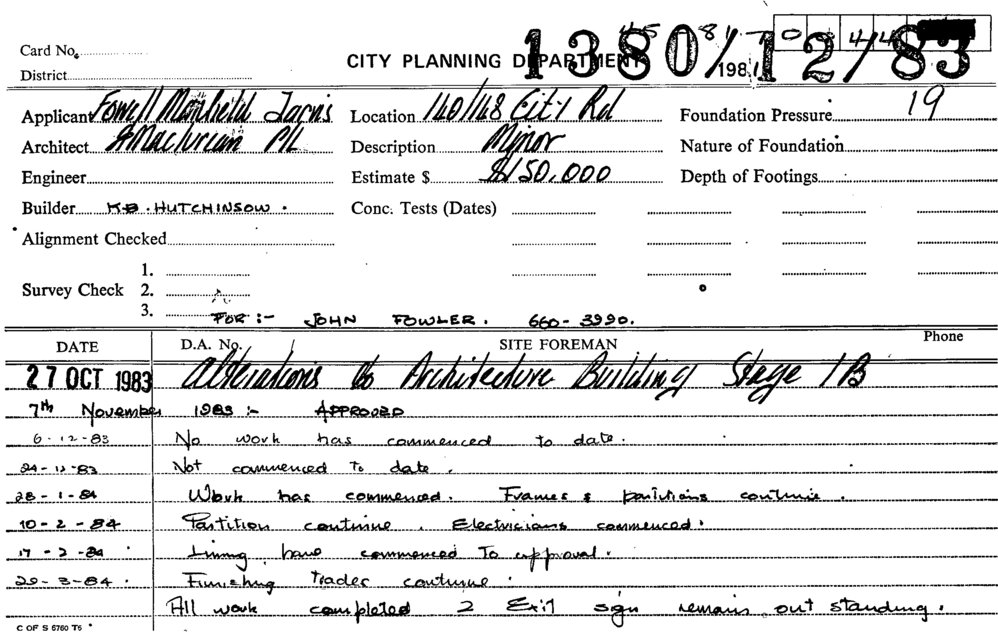 45 81 T 0 44
Card No.
CITY PLANNING DEPARTMENT 1380/12/83
198
District
Applicant Fowell Mansfield Jarvis Location 140/148 City Rd Foundation Pressure 19
Architect & Maclurcan P/L Description Minor Nature of Foundation
Engineer Estimate $ $150,000 Depth of Footings
Builder K.B. HUTCHINSON. Conc. Tests (Dates)
Alignment Checked
1.
Survey Check 2.
3.
FOR :- JOHN FOWLER. 660-3990.
DATE D.A. No. SITE FOREMAN Phone
27 OCT 1983 Alterations to Architecture Building Stage 1B
7th November 1983 :- APPROVED
6-12-83 No work has commenced to date.
24-12-83 Not commenced to date.
28-1-84 Work has commenced. Frames & partitions continue.
10-2-84 Partition continue. Electricians commenced.
17-2-84 Lining have commenced To approval.
29-3-84. Finishing Trades continue.
All work completed 2 Exit sign remain out standing.
C OF S 6760 T6